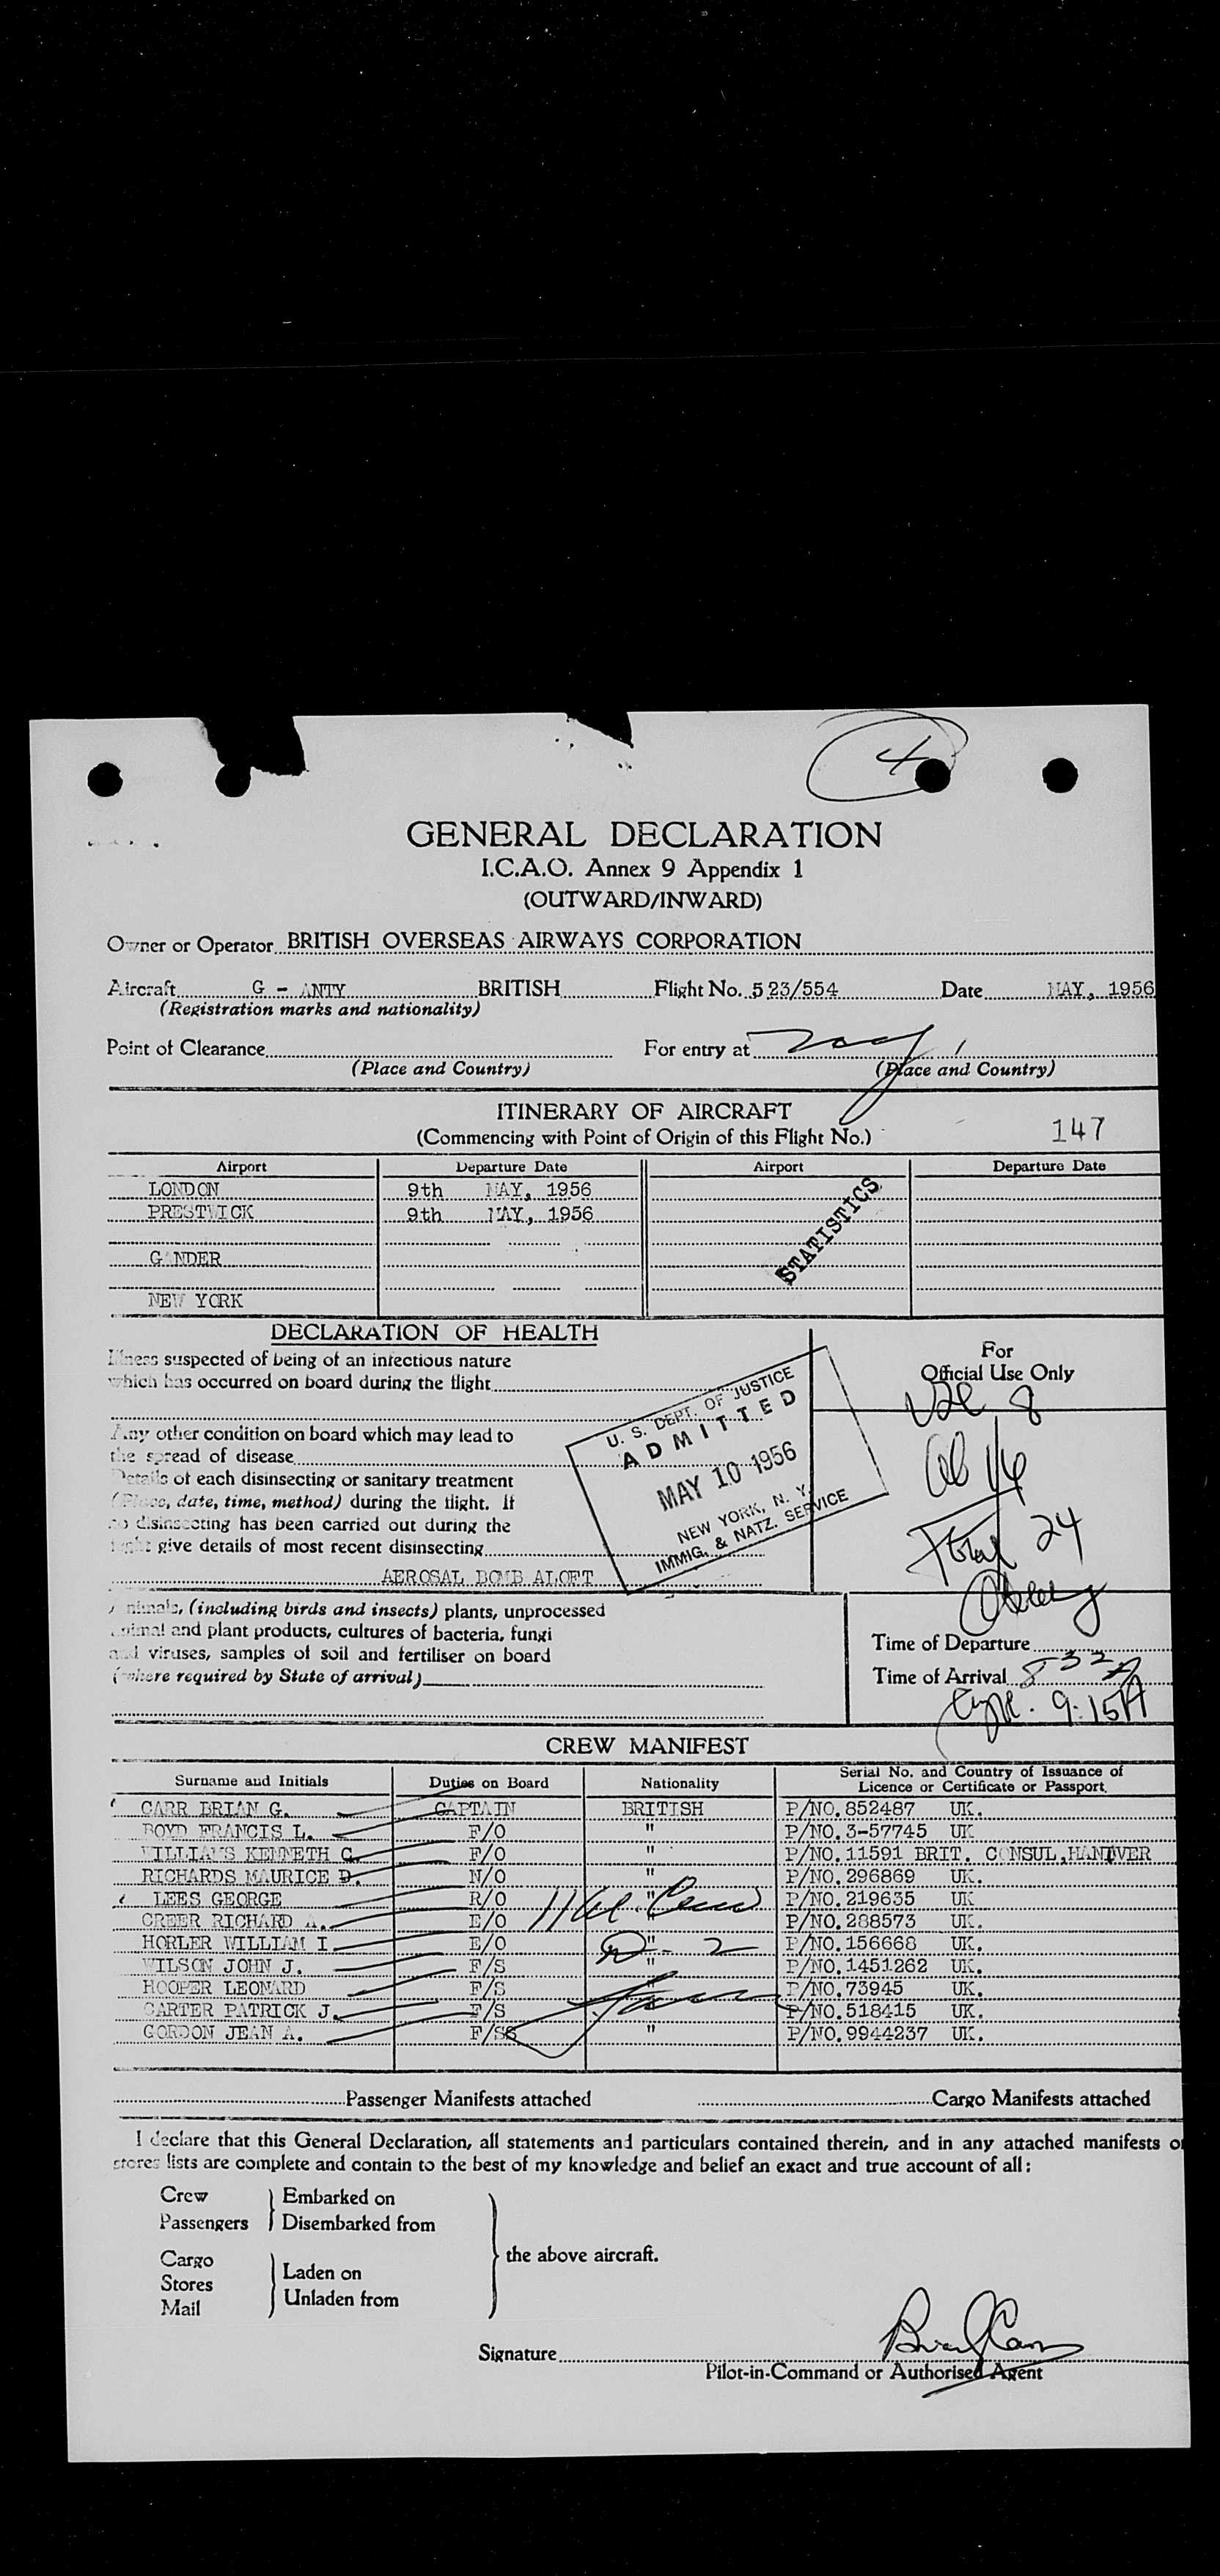 4
GENERAL DECLARATION
I.C.A.O. Annex 9 Appendix 1
(OUTWARD/INWARD)
Owner or Operator BRITISH OVERSEAS AIRWAYS CORPORATION
Aircraft G - ANTY BRITISH Flight No. 523/554 Date MAY, 1956
(Registration marks and nationality)
Point of Clearance For entry at
(Place and Country) (Place and Country)
ITINERARY OF AIRCRAFT
(Commencing with Point of Origin of this Flight No.) 147
Airport Departure Date Airport Departure Date
LONDON 9th MAY, 1956
PRESTWICK 9th MAY, 1956
STATISTICS
GANDER
NEW YORK
DECLARATION OF HEALTH
Illness suspected of being of an infectious nature
which has occurred on board during the flight
For
Official Use Only
Any other condition on board which may lead to
the spread of disease
Details of each disinsecting or sanitary treatment
(Place, date, time, method) during the flight. If
no disinsecting has been carried out during the
flight give details of most recent disinsecting
AEROSAL BOMB ALOFT
U. S. DEPT. OF JUSTICE
ADMITTED
MAY 10 1956
NEW YORK, N. Y.
IMMIG. & NATZ. SERVICE
8
16
Total 24
Animals, (including birds and insects) plants, unprocessed
animal and plant products, cultures of bacteria, fungi
and viruses, samples of soil and fertiliser on board
(where required by State of arrival)
Time of Departure
Time of Arrival 8 32 A
9:15 A
CREW MANIFEST
Surname and Initials Duties on Board Nationality Serial No. and Country of Issuance of Licence or Certificate or Passport.
CARR BRIAN G. CAPTAIN BRITISH P/NO. 852487 UK.
BOYD FRANCIS L. F/O " P/NO. 3-57745 UK
WILLIAMS KENNETH C. F/O " P/NO. 11591 BRIT. CONSUL, HANIVER
RICHARDS MAURICE D. N/O " P/NO. 296869 UK.
LEES GEORGE R/O " P/NO. 219635 UK
GREER RICHARD A. E/O " P/NO. 288573 UK.
HORLER WILLIAM I. E/O " P/NO. 156668 UK.
WILSON JOHN J. F/S " P/NO. 1451262 UK.
HOOPER LEONARD F/S " P/NO. 73945 UK.
CARTER PATRICK J. F/S " P/NO. 518415 UK.
GORDON JEAN A. F/SS " P/NO. 9944237 UK.
Passenger Manifests attached Cargo Manifests attached
I declare that this General Declaration, all statements and particulars contained therein, and in any attached manifests or
stores lists are complete and contain to the best of my knowledge and belief an exact and true account of all:
Crew Embarked on
Passengers Disembarked from
the above aircraft.
Cargo Laden on
Stores
Mail Unladen from
Signature
Pilot-in-Command or Authorised Agent